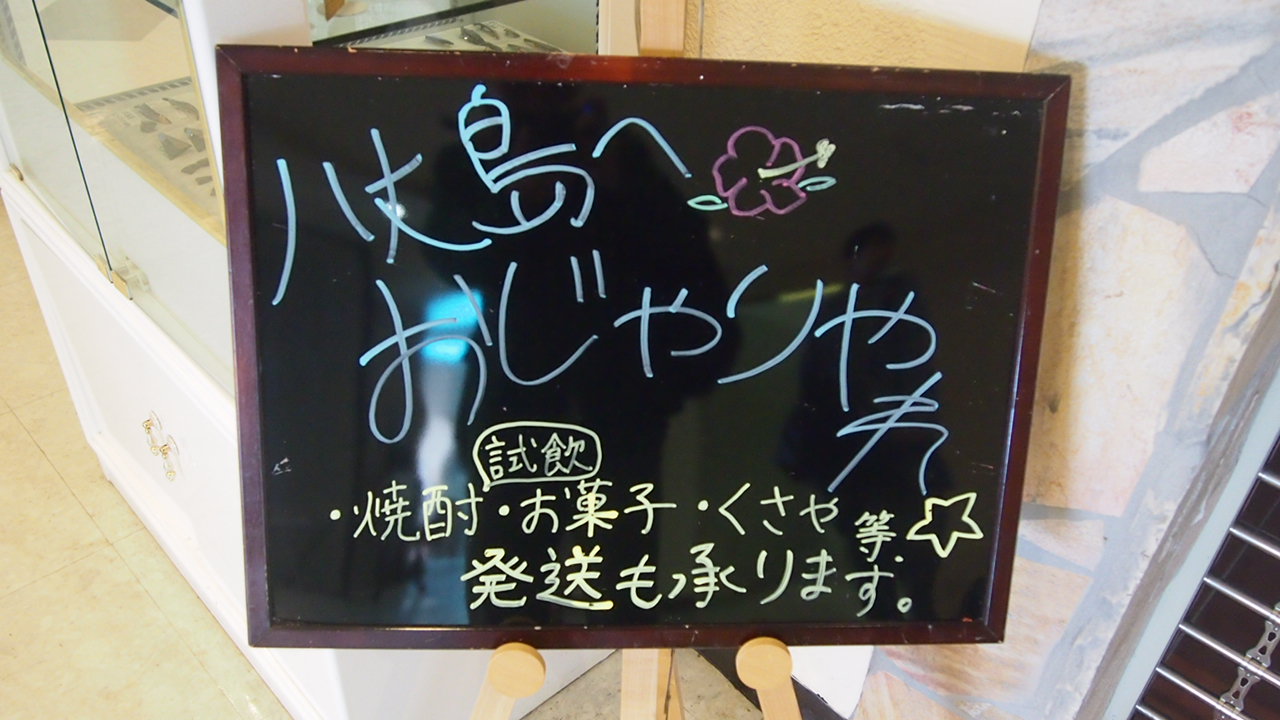 八丈島へ
おじゃりやれ
試飲
・焼酎・お菓子・くさや等☆
発送も承ります。